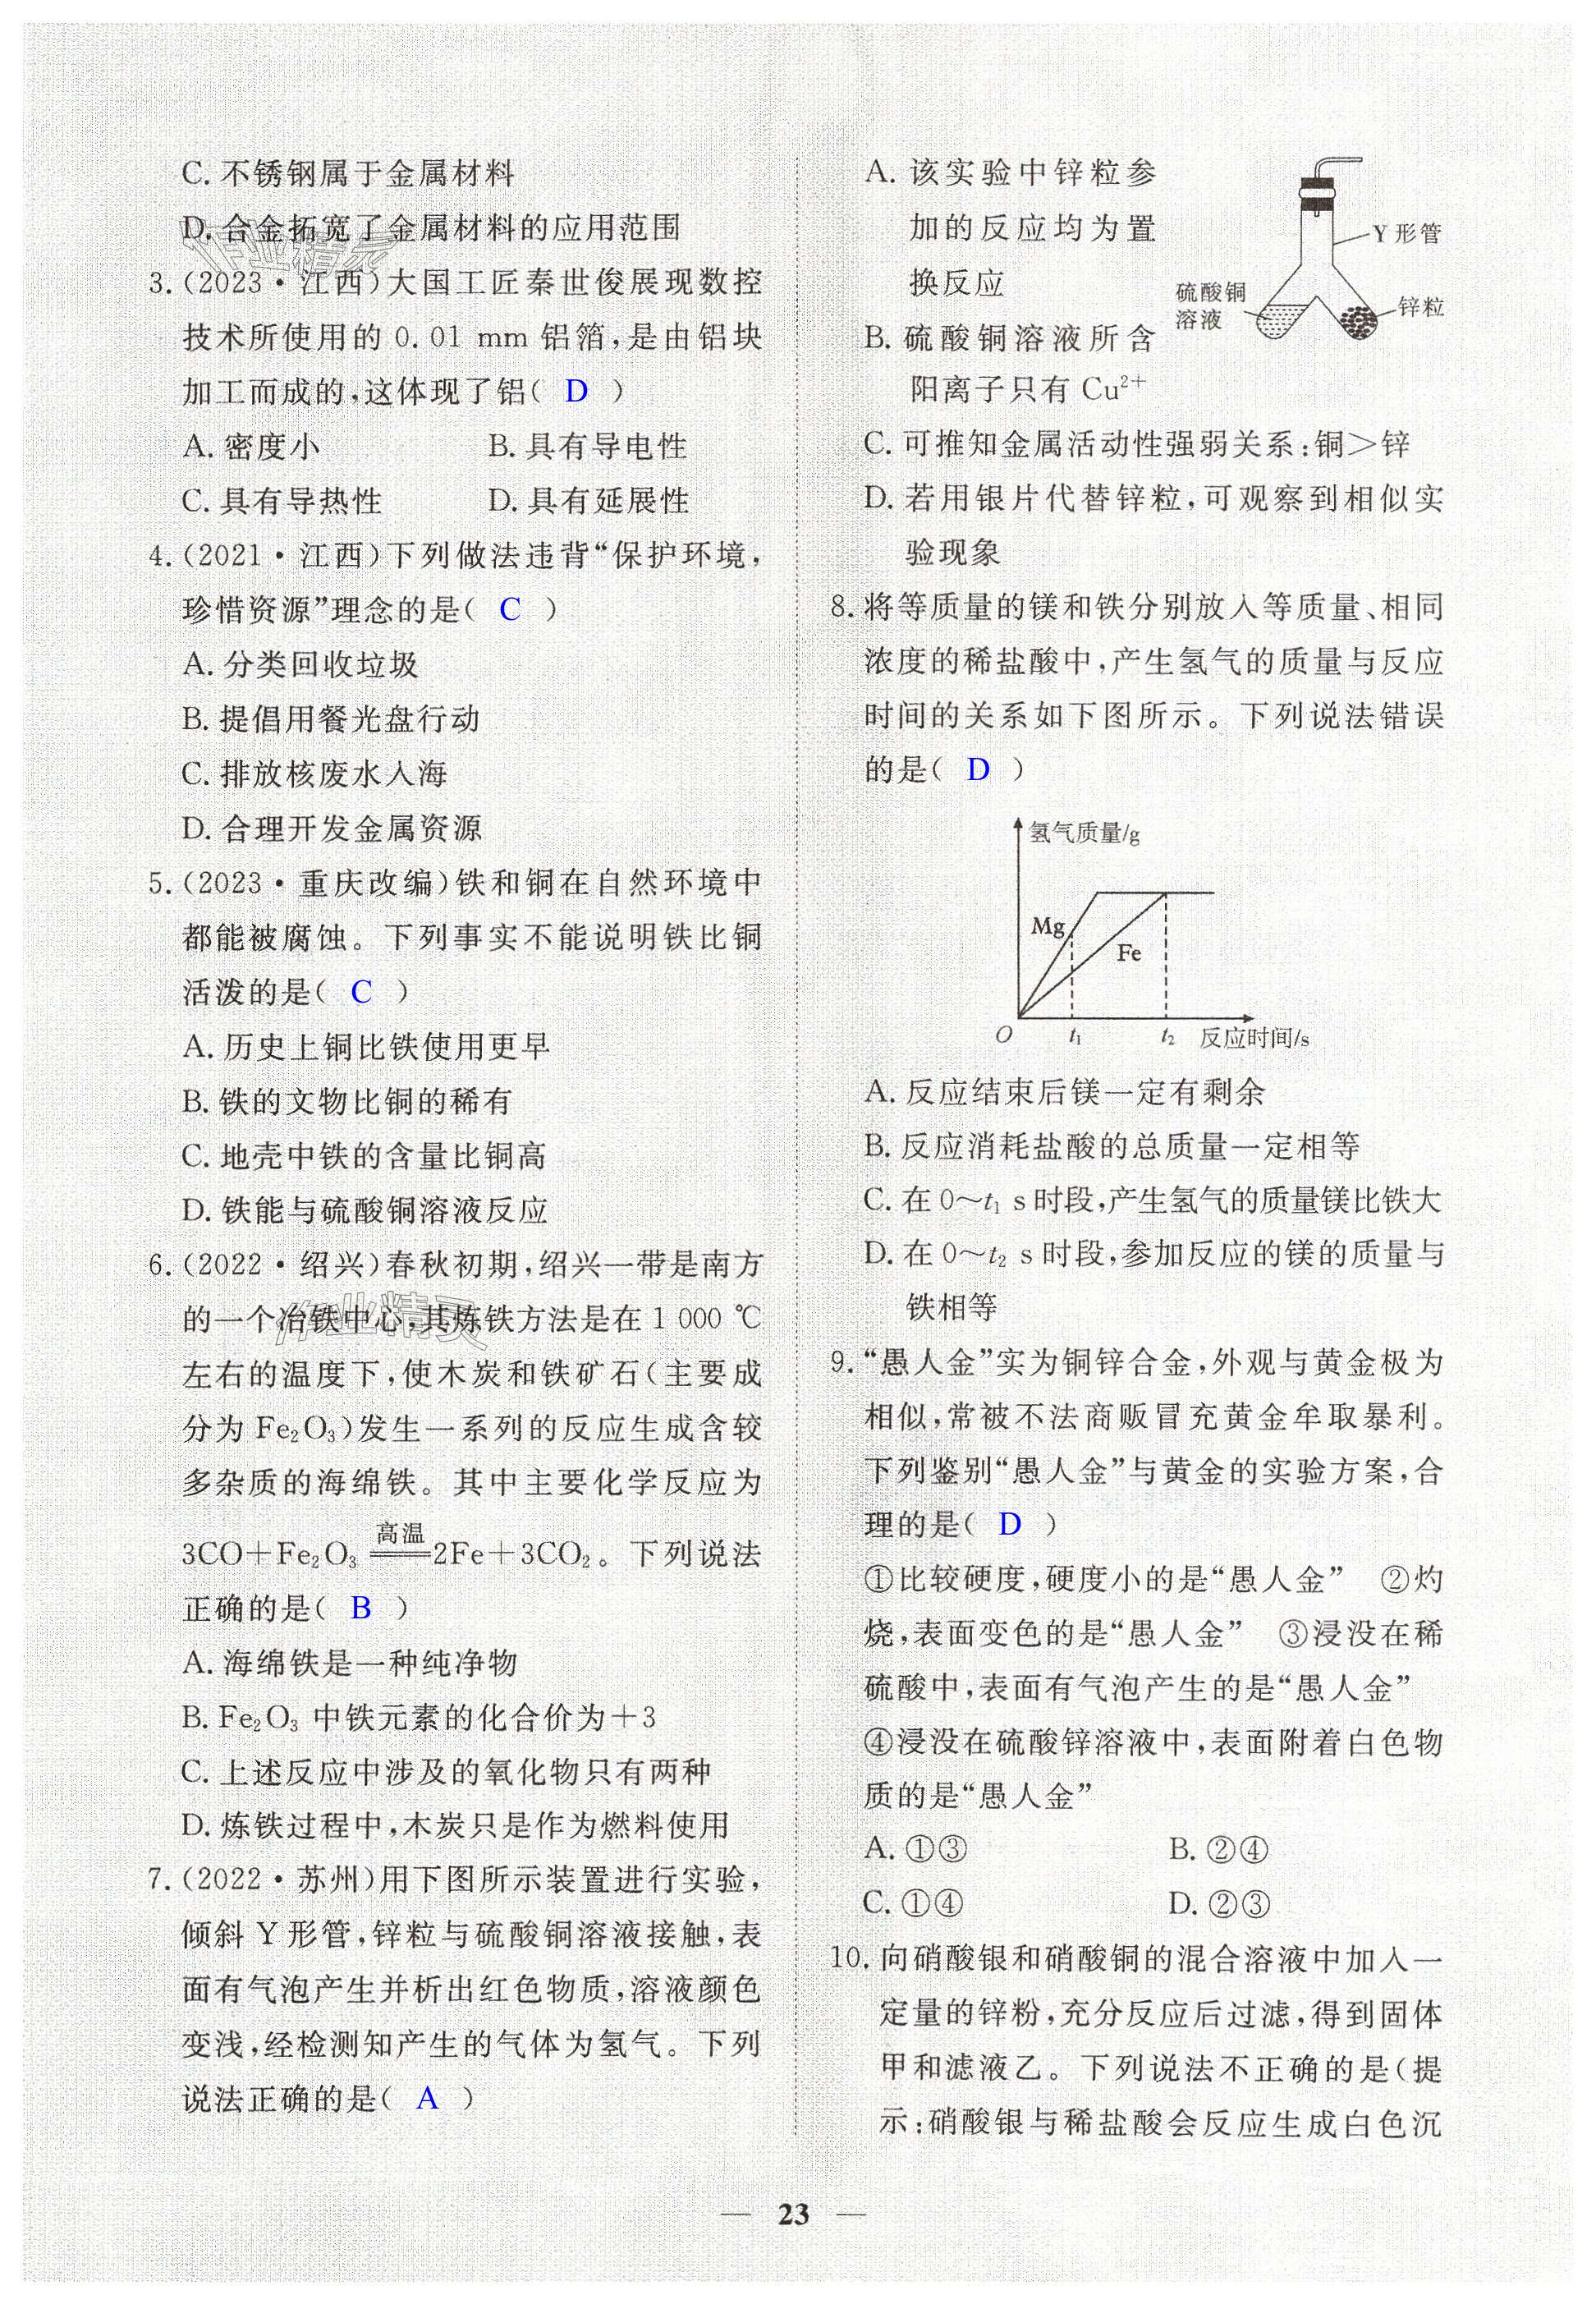 C. 不锈钢属于金属材料
D. 合金拓宽了金属材料的应用范围
3. (2023·江西)大国工匠秦世俊展现数控
技术所使用的 0.01 mm 铝箔,是由铝块
加工而成的,这体现了铝( D )
A. 密度小 B. 具有导电性
C. 具有导热性 D. 具有延展性
4. (2021·江西)下列做法违背“保护环境,
珍惜资源”理念的是( C )
A. 分类回收垃圾
B. 提倡用餐光盘行动
C. 排放核废水入海
D. 合理开发金属资源
5. (2023·重庆改编)铁和铜在自然环境中
都能被腐蚀。下列事实不能说明铁比铜
活泼的是( C )
A. 历史上铜比铁使用更早
B. 铁的文物比铜的稀有
C. 地壳中铁的含量比铜高
D. 铁能与硫酸铜溶液反应
6. (2022·绍兴)春秋初期,绍兴一带是南方
的一个冶铁中心,其炼铁方法是在 1 000 ℃
左右的温度下,使木炭和铁矿石(主要成
分为 Fe₂O₃)发生一系列的反应生成含较
多杂质的海绵铁。其中主要化学反应为
高温
3CO+Fe₂O₃══2Fe+3CO₂。下列说法
正确的是( B )
A. 海绵铁是一种纯净物
B. Fe₂O₃ 中铁元素的化合价为+3
C. 上述反应中涉及的氧化物只有两种
D. 炼铁过程中,木炭只是作为燃料使用
7. (2022·苏州)用下图所示装置进行实验,
倾斜 Y 形管,锌粒与硫酸铜溶液接触,表
面有气泡产生并析出红色物质,溶液颜色
变浅,经检测知产生的气体为氢气。下列
说法正确的是( A )
A. 该实验中锌粒参
加的反应均为置
换反应
B. 硫酸铜溶液所含
阳离子只有 Cu²⁺
Y 形管
硫酸铜
溶液
锌粒
C. 可推知金属活动性强弱关系:铜>锌
D. 若用银片代替锌粒,可观察到相似实
验现象
8. 将等质量的镁和铁分别放入等质量、相同
浓度的稀盐酸中,产生氢气的质量与反应
时间的关系如下图所示。下列说法错误
的是( D )
氢气质量/g
Mg
Fe
O t₁ t₂ 反应时间/s
A. 反应结束后镁一定有剩余
B. 反应消耗盐酸的总质量一定相等
C. 在 0～t₁ s 时段,产生氢气的质量镁比铁大
D. 在 0～t₂ s 时段,参加反应的镁的质量与
铁相等
9. “愚人金”实为铜锌合金,外观与黄金极为
相似,常被不法商贩冒充黄金牟取暴利。
下列鉴别“愚人金”与黄金的实验方案,合
理的是( D )
①比较硬度,硬度小的是“愚人金” ②灼
烧,表面变色的是“愚人金” ③浸没在稀
硫酸中,表面有气泡产生的是“愚人金”
④浸没在硫酸锌溶液中,表面附着白色物
质的是“愚人金”
A. ①③ B. ②④
C. ①④ D. ②③
10. 向硝酸银和硝酸铜的混合溶液中加入一
定量的锌粉,充分反应后过滤,得到固体
甲和滤液乙。下列说法不正确的是(提
示:硝酸银与稀盐酸会反应生成白色沉
— 23 —
作业精灵
作业精灵